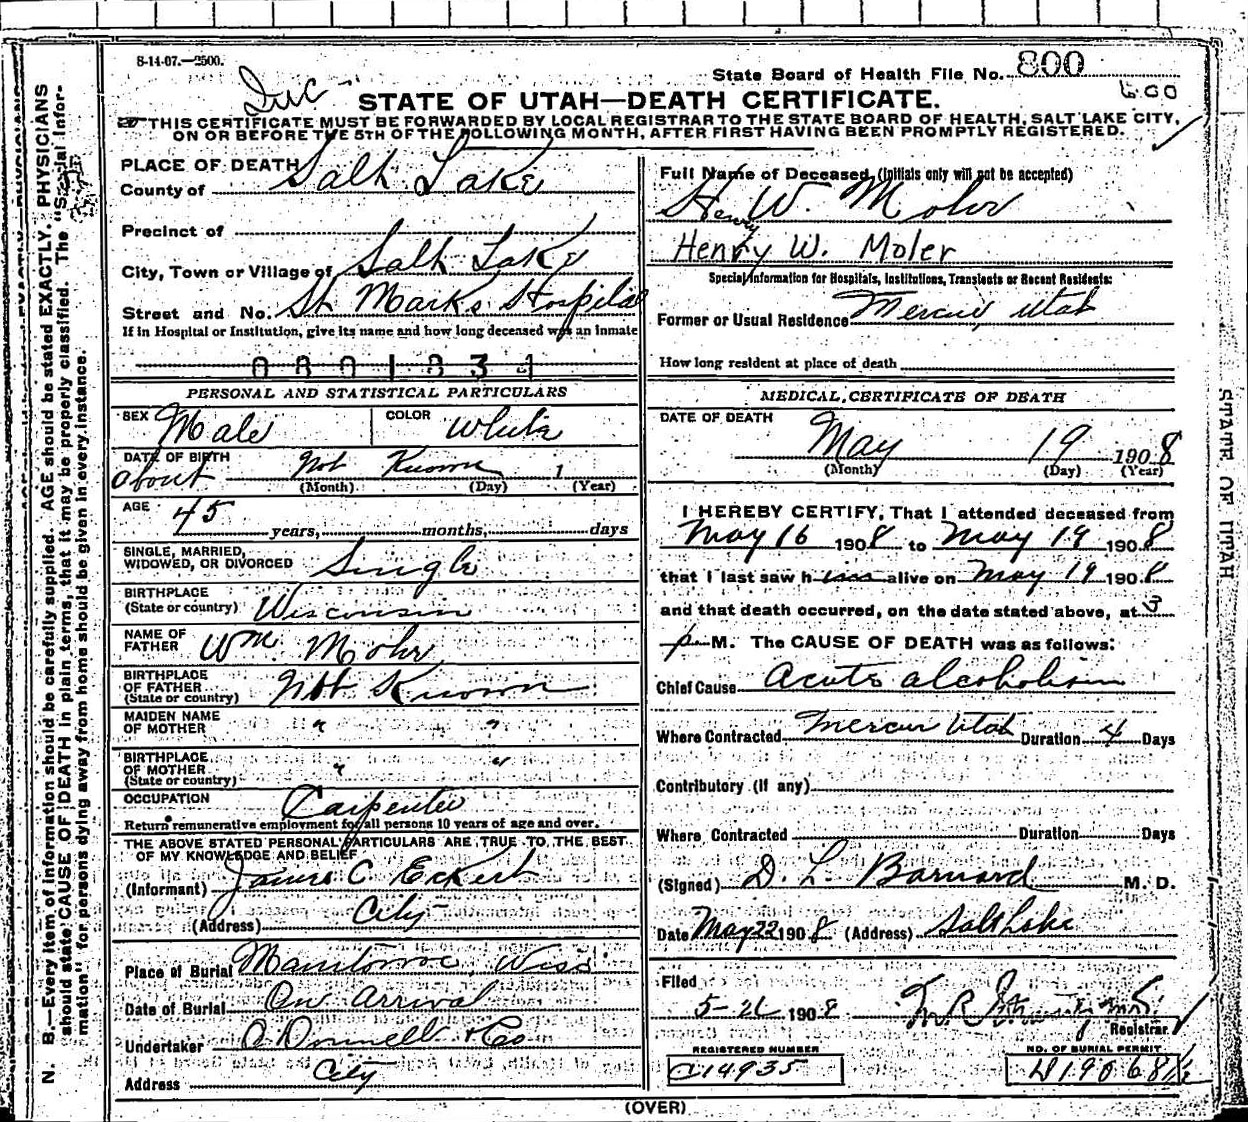 8-14-07.—2500.
State Board of Health File No. 800
STATE OF UTAH—DEATH CERTIFICATE.
THIS CERTIFICATE MUST BE FORWARDED BY LOCAL REGISTRAR TO THE STATE BOARD OF HEALTH, SALT LAKE CITY,
ON OR BEFORE THE 5TH OF THE FOLLOWING MONTH, AFTER FIRST HAVING BEEN PROMPTLY REGISTERED.
PLACE OF DEATH
County of Salt Lake
Precinct of
City, Town or Village of Salt Lake
Street and No. St Marks Hospital
If in Hospital or Institution, give its name and how long deceased was an inmate
PERSONAL AND STATISTICAL PARTICULARS
SEX Male COLOR White
DATE OF BIRTH
about Not Known 1
(Month) (Day) (Year)
AGE 45 years, months, days
SINGLE, MARRIED,
WIDOWED, OR DIVORCED Single
BIRTHPLACE
(State or country) Wisconsin
NAME OF
FATHER Wm. Mohr
BIRTHPLACE
OF FATHER
(State or country) Not Known
MAIDEN NAME
OF MOTHER " "
BIRTHPLACE
OF MOTHER
(State or country) " "
OCCUPATION Carpenter
Return remunerative employment for all persons 10 years of age and over.
THE ABOVE STATED PERSONAL PARTICULARS ARE TRUE TO THE BEST
OF MY KNOWLEDGE AND BELIEF
(Informant) James C Eckert
(Address) City
Place of Burial Manitowoc, Wiss
Date of Burial On Arrival
Undertaker O Donnell & Co
Address City
Full Name of Deceased (Initials only will not be accepted)
Henry W. Mohr
Henry W. Moler
Special Information for Hospitals, Institutions, Transients or Recent Residents:
Former or Usual Residence Mercur, Utah
How long resident at place of death
MEDICAL CERTIFICATE OF DEATH
DATE OF DEATH
May 19 1908
(Month) (Day) (Year)
I HEREBY CERTIFY, That I attended deceased from
May 16 1908 to May 19 1908
that I last saw h im alive on May 19 1908
and that death occurred, on the date stated above, at 3
p M. The CAUSE OF DEATH was as follows:
Chief Cause Acute alcoholism
Where Contracted Mercur Utah Duration 4 Days
Contributory (if any)
Where Contracted Duration Days
(Signed) D. L. Barnard M. D.
Date May 22 1908 (Address) Salt Lake
Filed
5-26 1908
Registrar.
REGISTERED NUMBER
C14935
NO. OF BURIAL PERMIT
(OVER)
N. B.—Every item of information should be carefully supplied. AGE should be stated EXACTLY. PHYSICIANS
should state CAUSE OF DEATH in plain terms, that it may be properly classified. The "Special Infor-
mation" for persons dying away from home should be given in every instance.
STATE OF UTAH